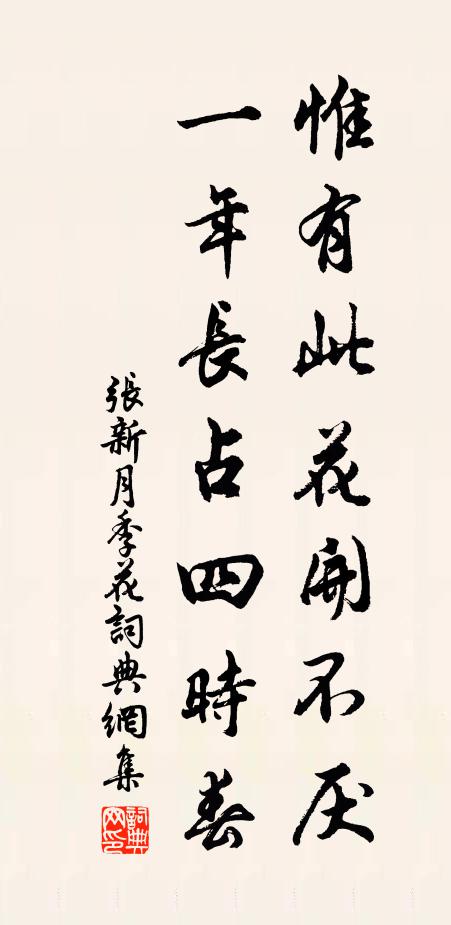 惟有此花開不厌
一年長占四時春
張新月季花詞典網集
詞典網印